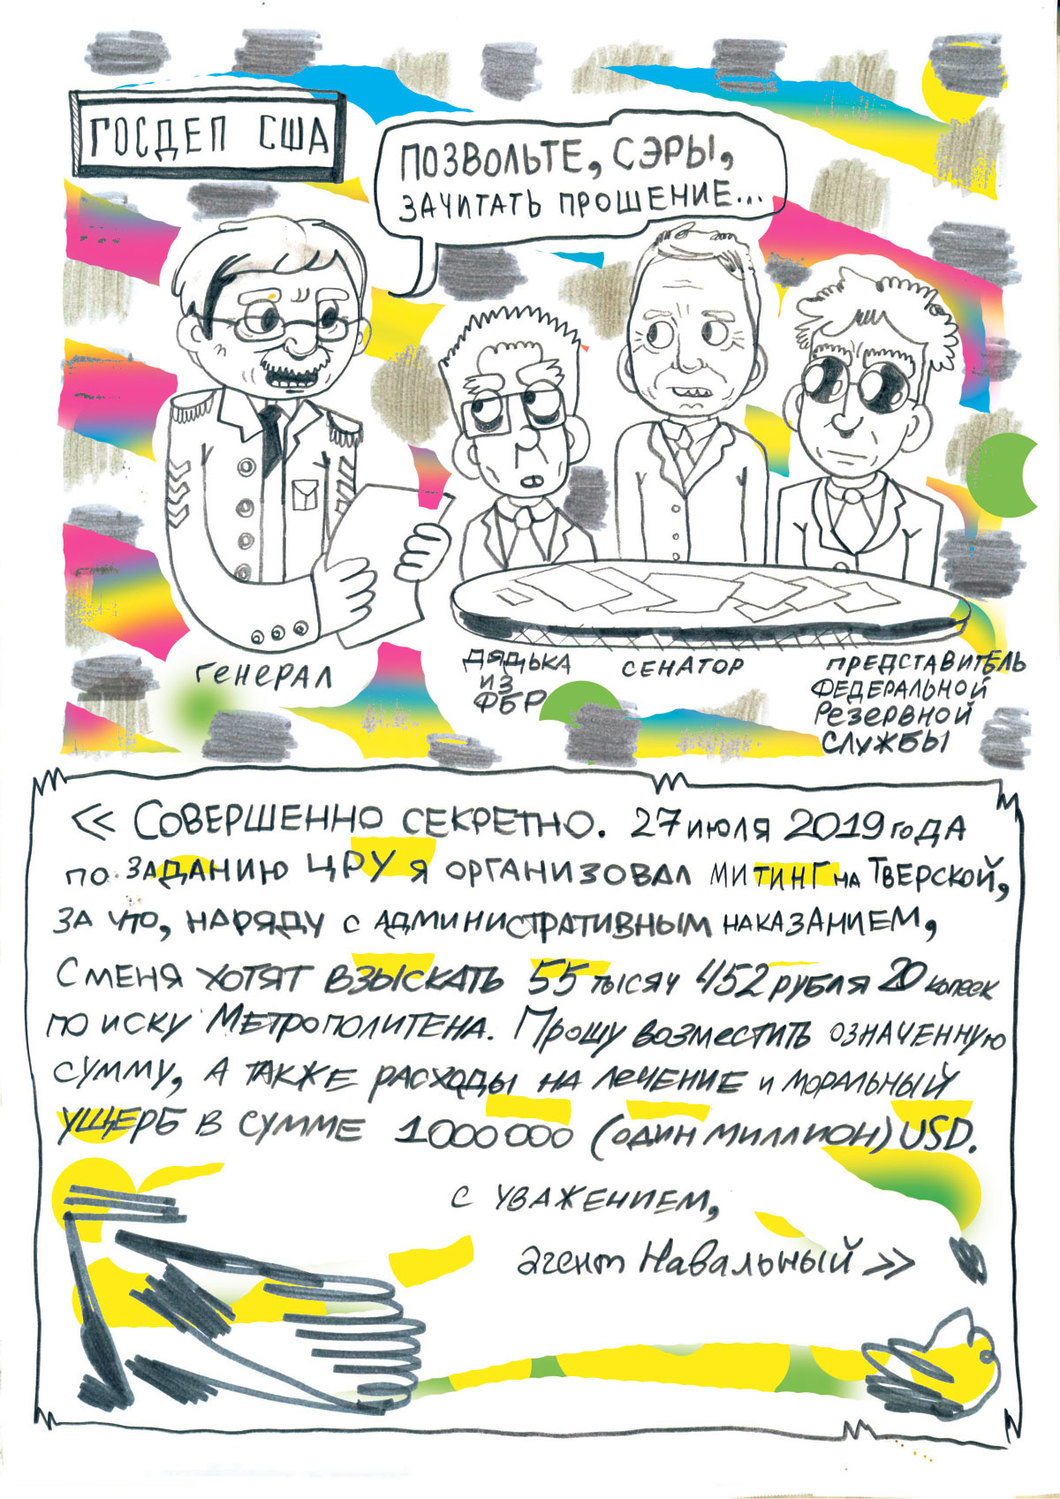 ГОСДЕП США
ПОЗВОЛЬТЕ, СЭРЫ,
ЗАЧИТАТЬ ПРОШЕНИЕ...
ГЕНЕРАЛ
ДЯДЬКА
ИЗ
ФБР
СЕНАТОР
ПРЕДСТАВИТЕЛЬ
ФЕДЕРАЛЬНОЙ
РЕЗЕРВНОЙ
СЛУЖБЫ
« СОВЕРШЕННО СЕКРЕТНО. 27 ИЮЛЯ 2019 ГОДА
ПО ЗАДАНИЮ ЦРУ Я ОРГАНИЗОВАЛ МИТИНГ НА ТВЕРСКОЙ,
ЗА ЧТО, НАРЯДУ С АДМИНИСТРАТИВНЫМ НАКАЗАНИЕМ,
С МЕНЯ ХОТЯТ ВЗЫСКАТЬ 55 ТЫСЯЧ 452 РУБЛЯ 20 КОПЕЕК
ПО ИСКУ МЕТРОПОЛИТЕНА. ПРОШУ ВОЗМЕСТИТЬ ОЗНАЧЕННУЮ
СУММУ, А ТАКЖЕ РАСХОДЫ НА ЛЕЧЕНИЕ И МОРАЛЬНЫЙ
УЩЕРБ В СУММЕ 1000 000 (ОДИН МИЛЛИОН) USD.
С УВАЖЕНИЕМ,
агент Навальный »